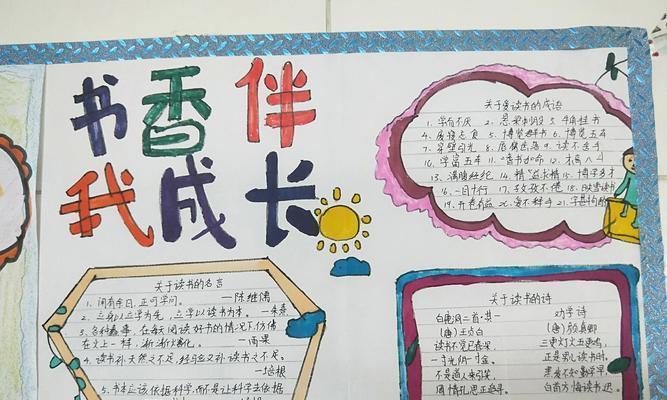 书香伴
我成长
关于爱读书的成语
1、学而不厌 2、悬梁刺股 3、牛角挂书
4、废寝忘食 5、博览群书 6、博览五车
7、凿壁匀光 8、 9、读不舍手
10、学富五车 11、嗜书如命 12、
13、韦编三绝 14、 15、博学多才
16、一目十行 17、孜孜不倦 18、映雪读书
19、开卷有益 20、爱不释手 21、
关于读书的名言
1、闲有余日,正可学问。 —陈继儒
2、立身以立学为先,立学以读书为本。 —朱熹
3、各种蠢事,在每天阅读好书的情况下,仿佛
在火上一样,渐渐熔化。 —雨果
4、读书补天然之不足,经验又补读书之不足。
—培根
5、书本应该依据科学,而不是让科学去依据
关于读书的诗
白鹿洞二首·其一 劝学诗
(唐)王贞白 (唐)颜真卿
读书不觉已春深, 三更灯火五更鸡,
一寸光阴一寸金。 正是男儿读书时。
不是道人来引笑, 黑发不知勤学早,
周情孔思正追寻。 白首方悔读书迟。